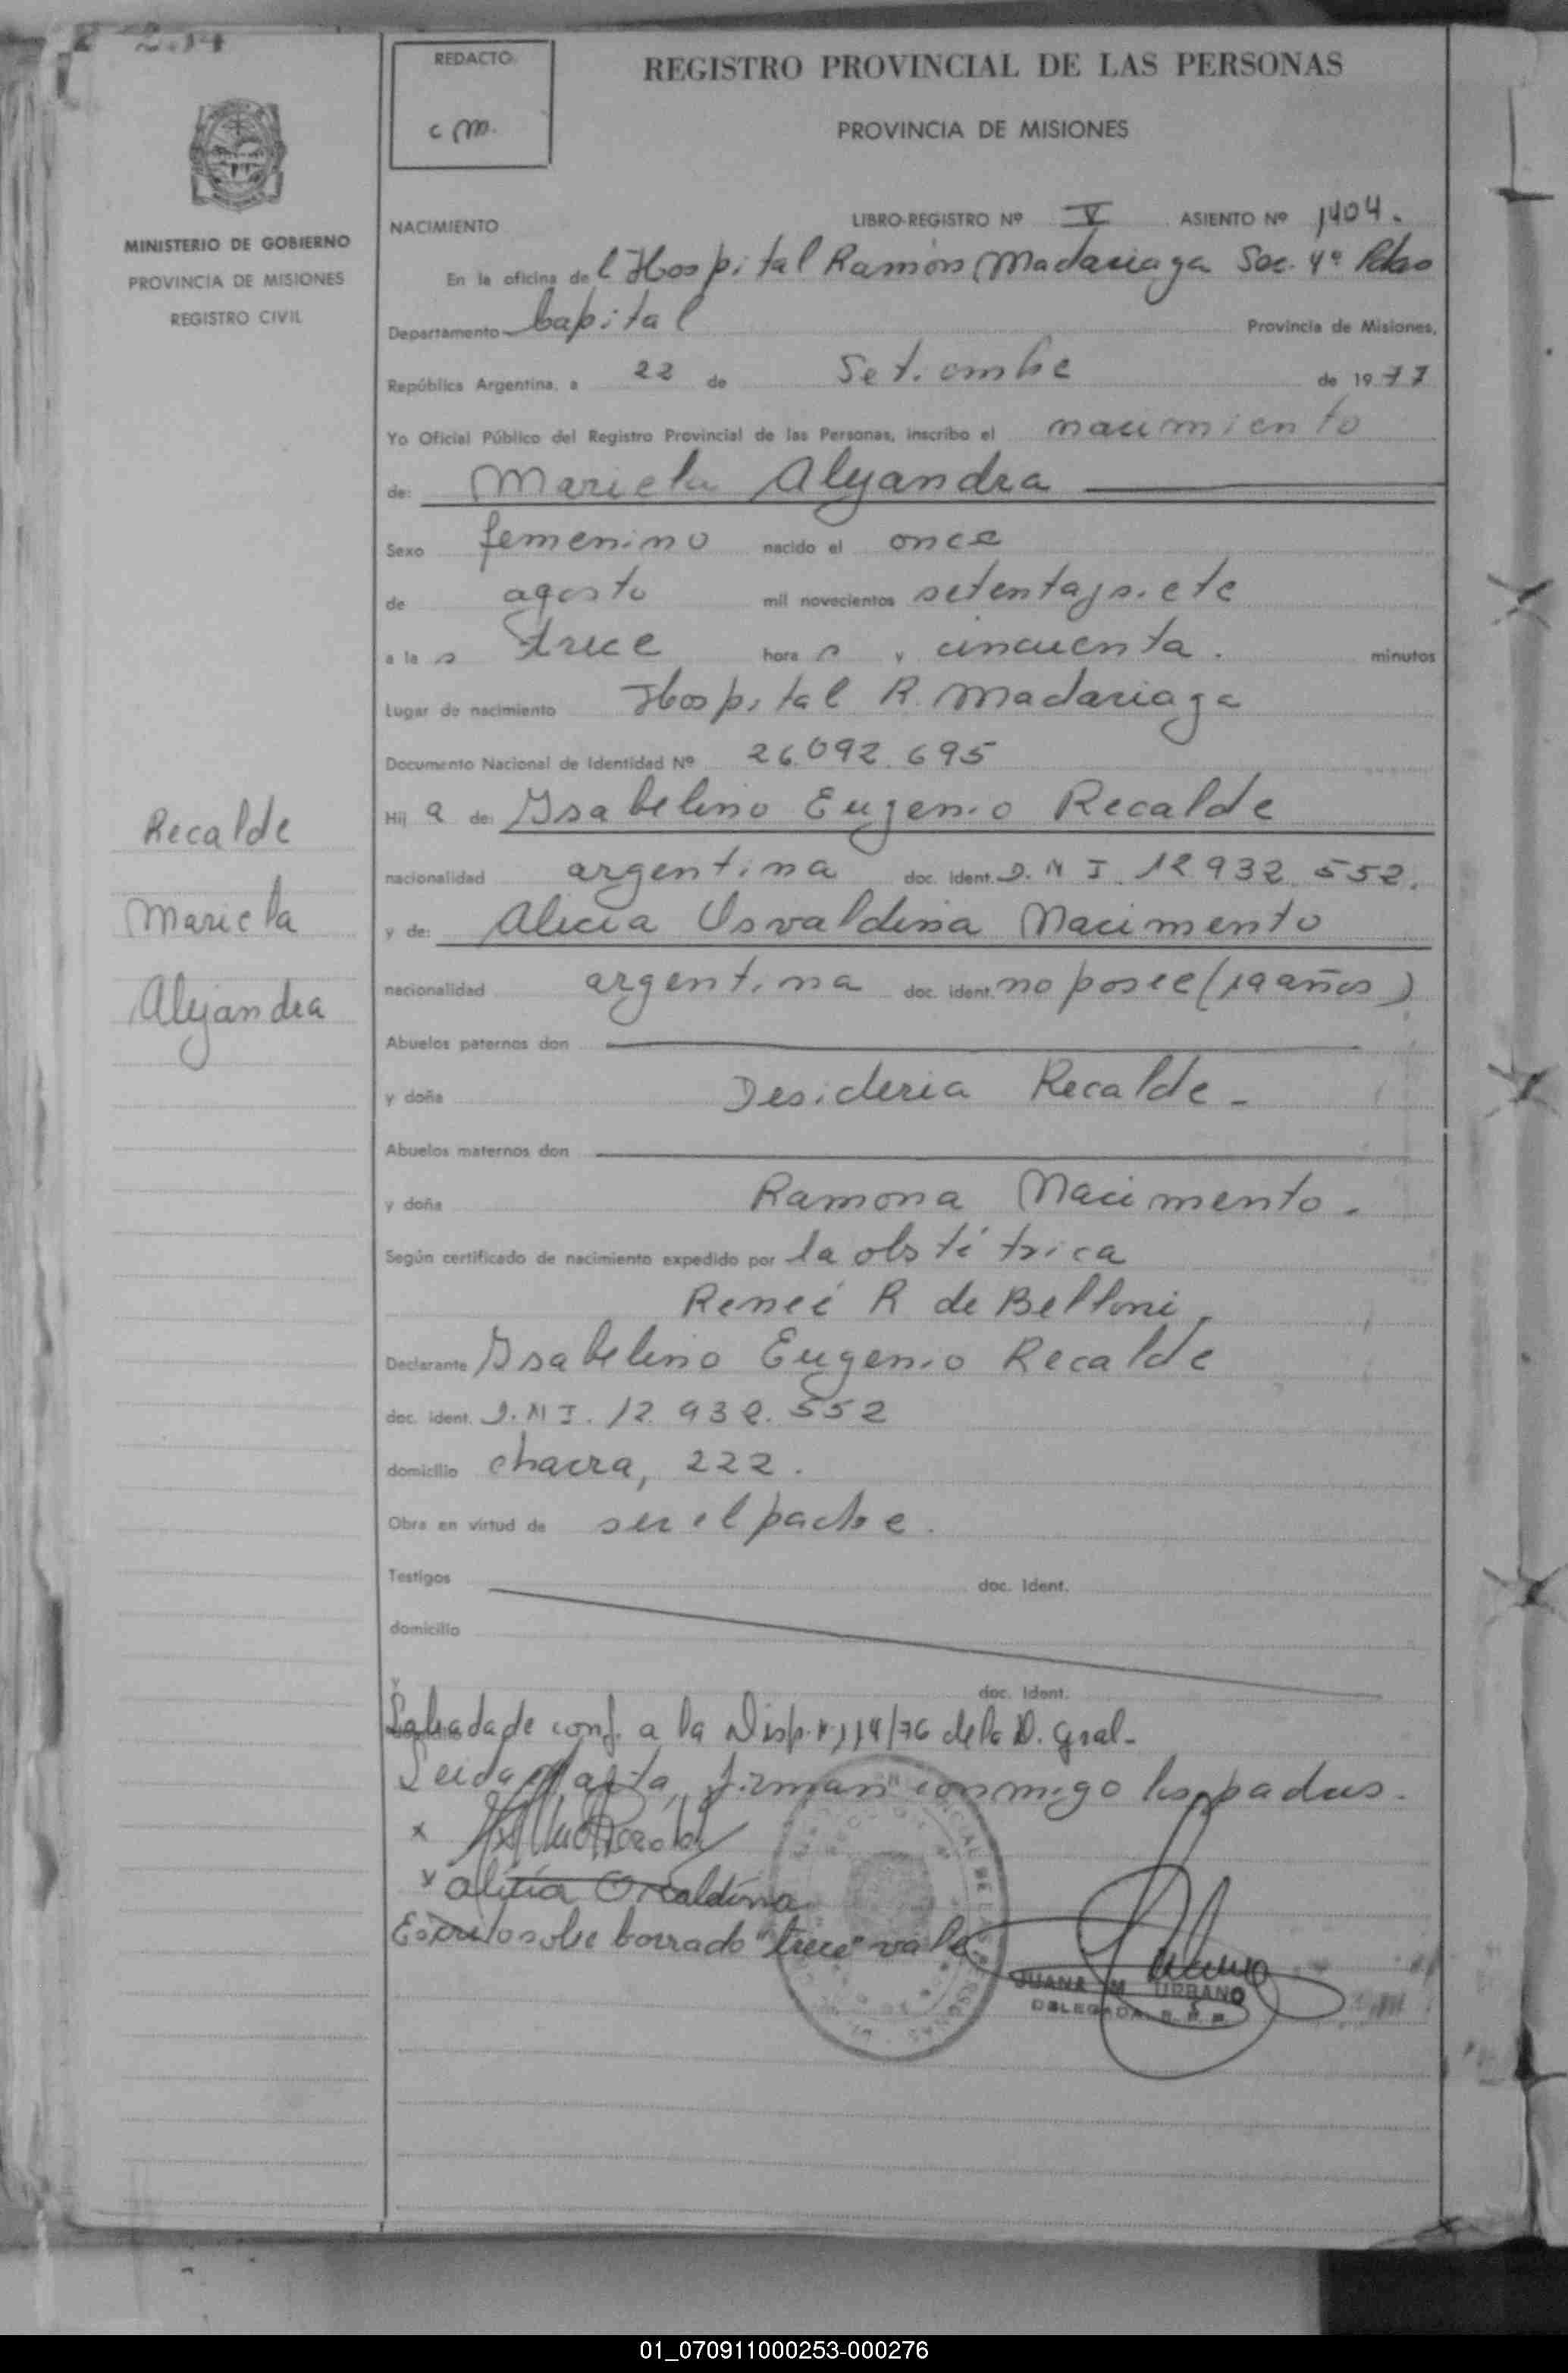 REDACTO
c m.
REGISTRO PROVINCIAL DE LAS PERSONAS
PROVINCIA DE MISIONES
MINISTERIO DE GOBIERNO
PROVINCIA DE MISIONES
REGISTRO CIVIL
NACIMIENTO LIBRO-REGISTRO Nº V ASIENTO Nº 1404.
En la oficina del Hospital Ramón Madariaga Sec. 4ª
Departamento Capital Provincia de Misiones,
República Argentina, a 22 de Setiembre de 1977
Yo Oficial Público del Registro Provincial de las Personas, inscribo el nacimiento
de: Mariela Alejandra
Sexo femenino nacido el once
de agosto mil novecientos setentaysiete
a las trece horas y cincuenta. minutos
Lugar de nacimiento Hospital R. Madariaga
Documento Nacional de Identidad Nº 26.092.695
Hija de: Ysabelino Eugenio Recalde
nacionalidad argentina doc. ident. D.N I. 12 932 552.
y de: Alicia Osvaldina Nacimento
nacionalidad argentina doc. ident. no posee (19 años)
Abuelos paternos don
y doña Desideria Recalde -
Abuelos maternos don
y doña Ramona Nacimento.
Según certificado de nacimiento expedido por la obstétrica
Reneé R de Belloni,
Declarante Ysabelino Eugenio Recalde
doc. ident. D.N I. 12 932. 552
domicilio chacra, 222.
Obra en virtud de ser el padre.
Testigos doc. ident.
domicilio
y doc. ident.
conf. a la Disp. Nº 114/76 de la D. Gral-
Leida el acta, firman conmigo los padres.
x
x alicia Osvaldina
Escrito sobre borrado "trece" vale
JUANA M URBANO
DELEGADA R. P. P.
Recalde
Mariela
Alejandra
01_070911000253-000276